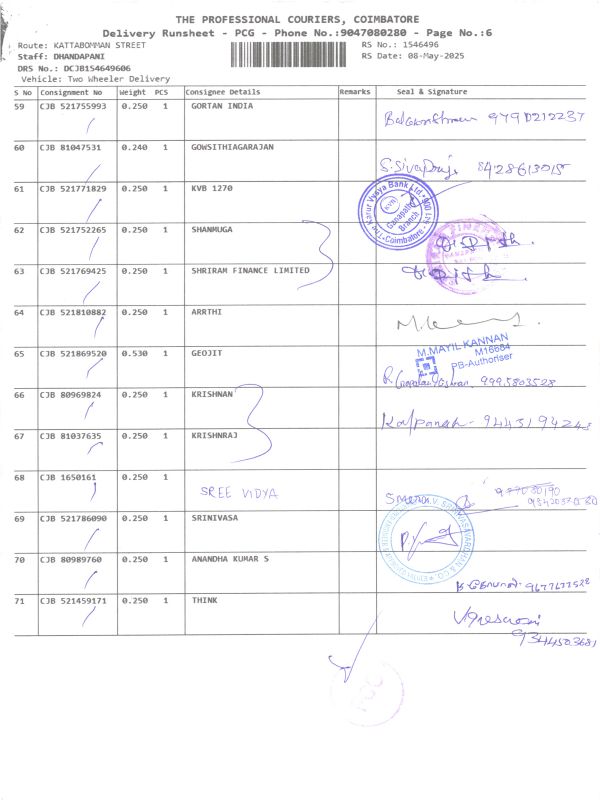 THE PROFESSIONAL COURIERS, COIMBATORE
Delivery Runsheet - PCG - Phone No.:9047080280 - Page No.:6
Route: KATTABOMMAN STREET RS No.: 1546496
Staff: DHANDAPANI RS Date: 08-May-2025
DRS No.: DCJB154649606
Vehicle: Two Wheeler Delivery
S No Consignment No Weight PCS Consignee Details Remarks Seal & Signature
59 CJB 521755993 0.250 1 GORTAN INDIA
9790212237
60 CJB 81047531 0.240 1 GOWSITHIAGARAJAN
8428613015
61 CJB 521771829 0.250 1 KVB 1270
The Karur Vysya Bank Ltd.
KVB
Ganapathy
Branch
Coimbatore
62 CJB 521752265 0.250 1 SHANMUGA
63 CJB 521769425 0.250 1 SHRIRAM FINANCE LIMITED
64 CJB 521810882 0.250 1 ARRTHI
65 CJB 521869520 0.530 1 GEOJIT
M.MAYIL KANNAN
M16664
PB-Authoriser
9995803528
66 CJB 80969824 0.250 1 KRISHNAN
67 CJB 81037635 0.250 1 KRISHNRAJ
68 CJB 1650161 0.250 1 SREE VIDYA
69 CJB 521786090 0.250 1 SRINIVASA
70 CJB 80989760 0.250 1 ANANDHA KUMAR S
9677677528
71 CJB 521459171 0.250 1 THINK
9344503681